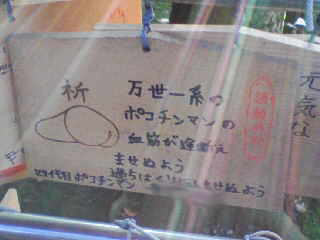 祈
万世一系の
ポコチンマンの
血筋が途絶え
ませぬよう
過ちはくり返しませぬよう
四代目ポコチンマン
元気な